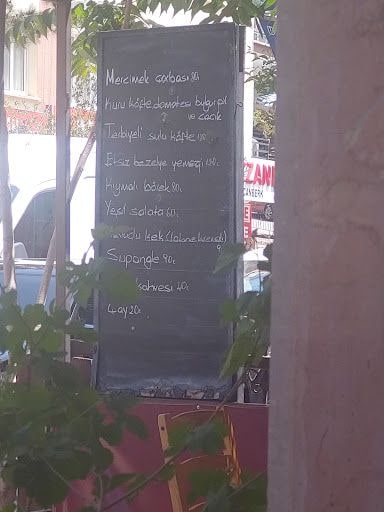 Mercimek çorbası 80₺
Kuru köfte domatesli bulgur pil
ve cacık
Terbiyeli sulu köfte
Etsiz bezelye yemeği
Kıymalı börek 80₺
Yeşil salata 60₺
kek
Supangle 90₺
kahvesi 40₺
Çay 20₺
ZANE
CANBERK